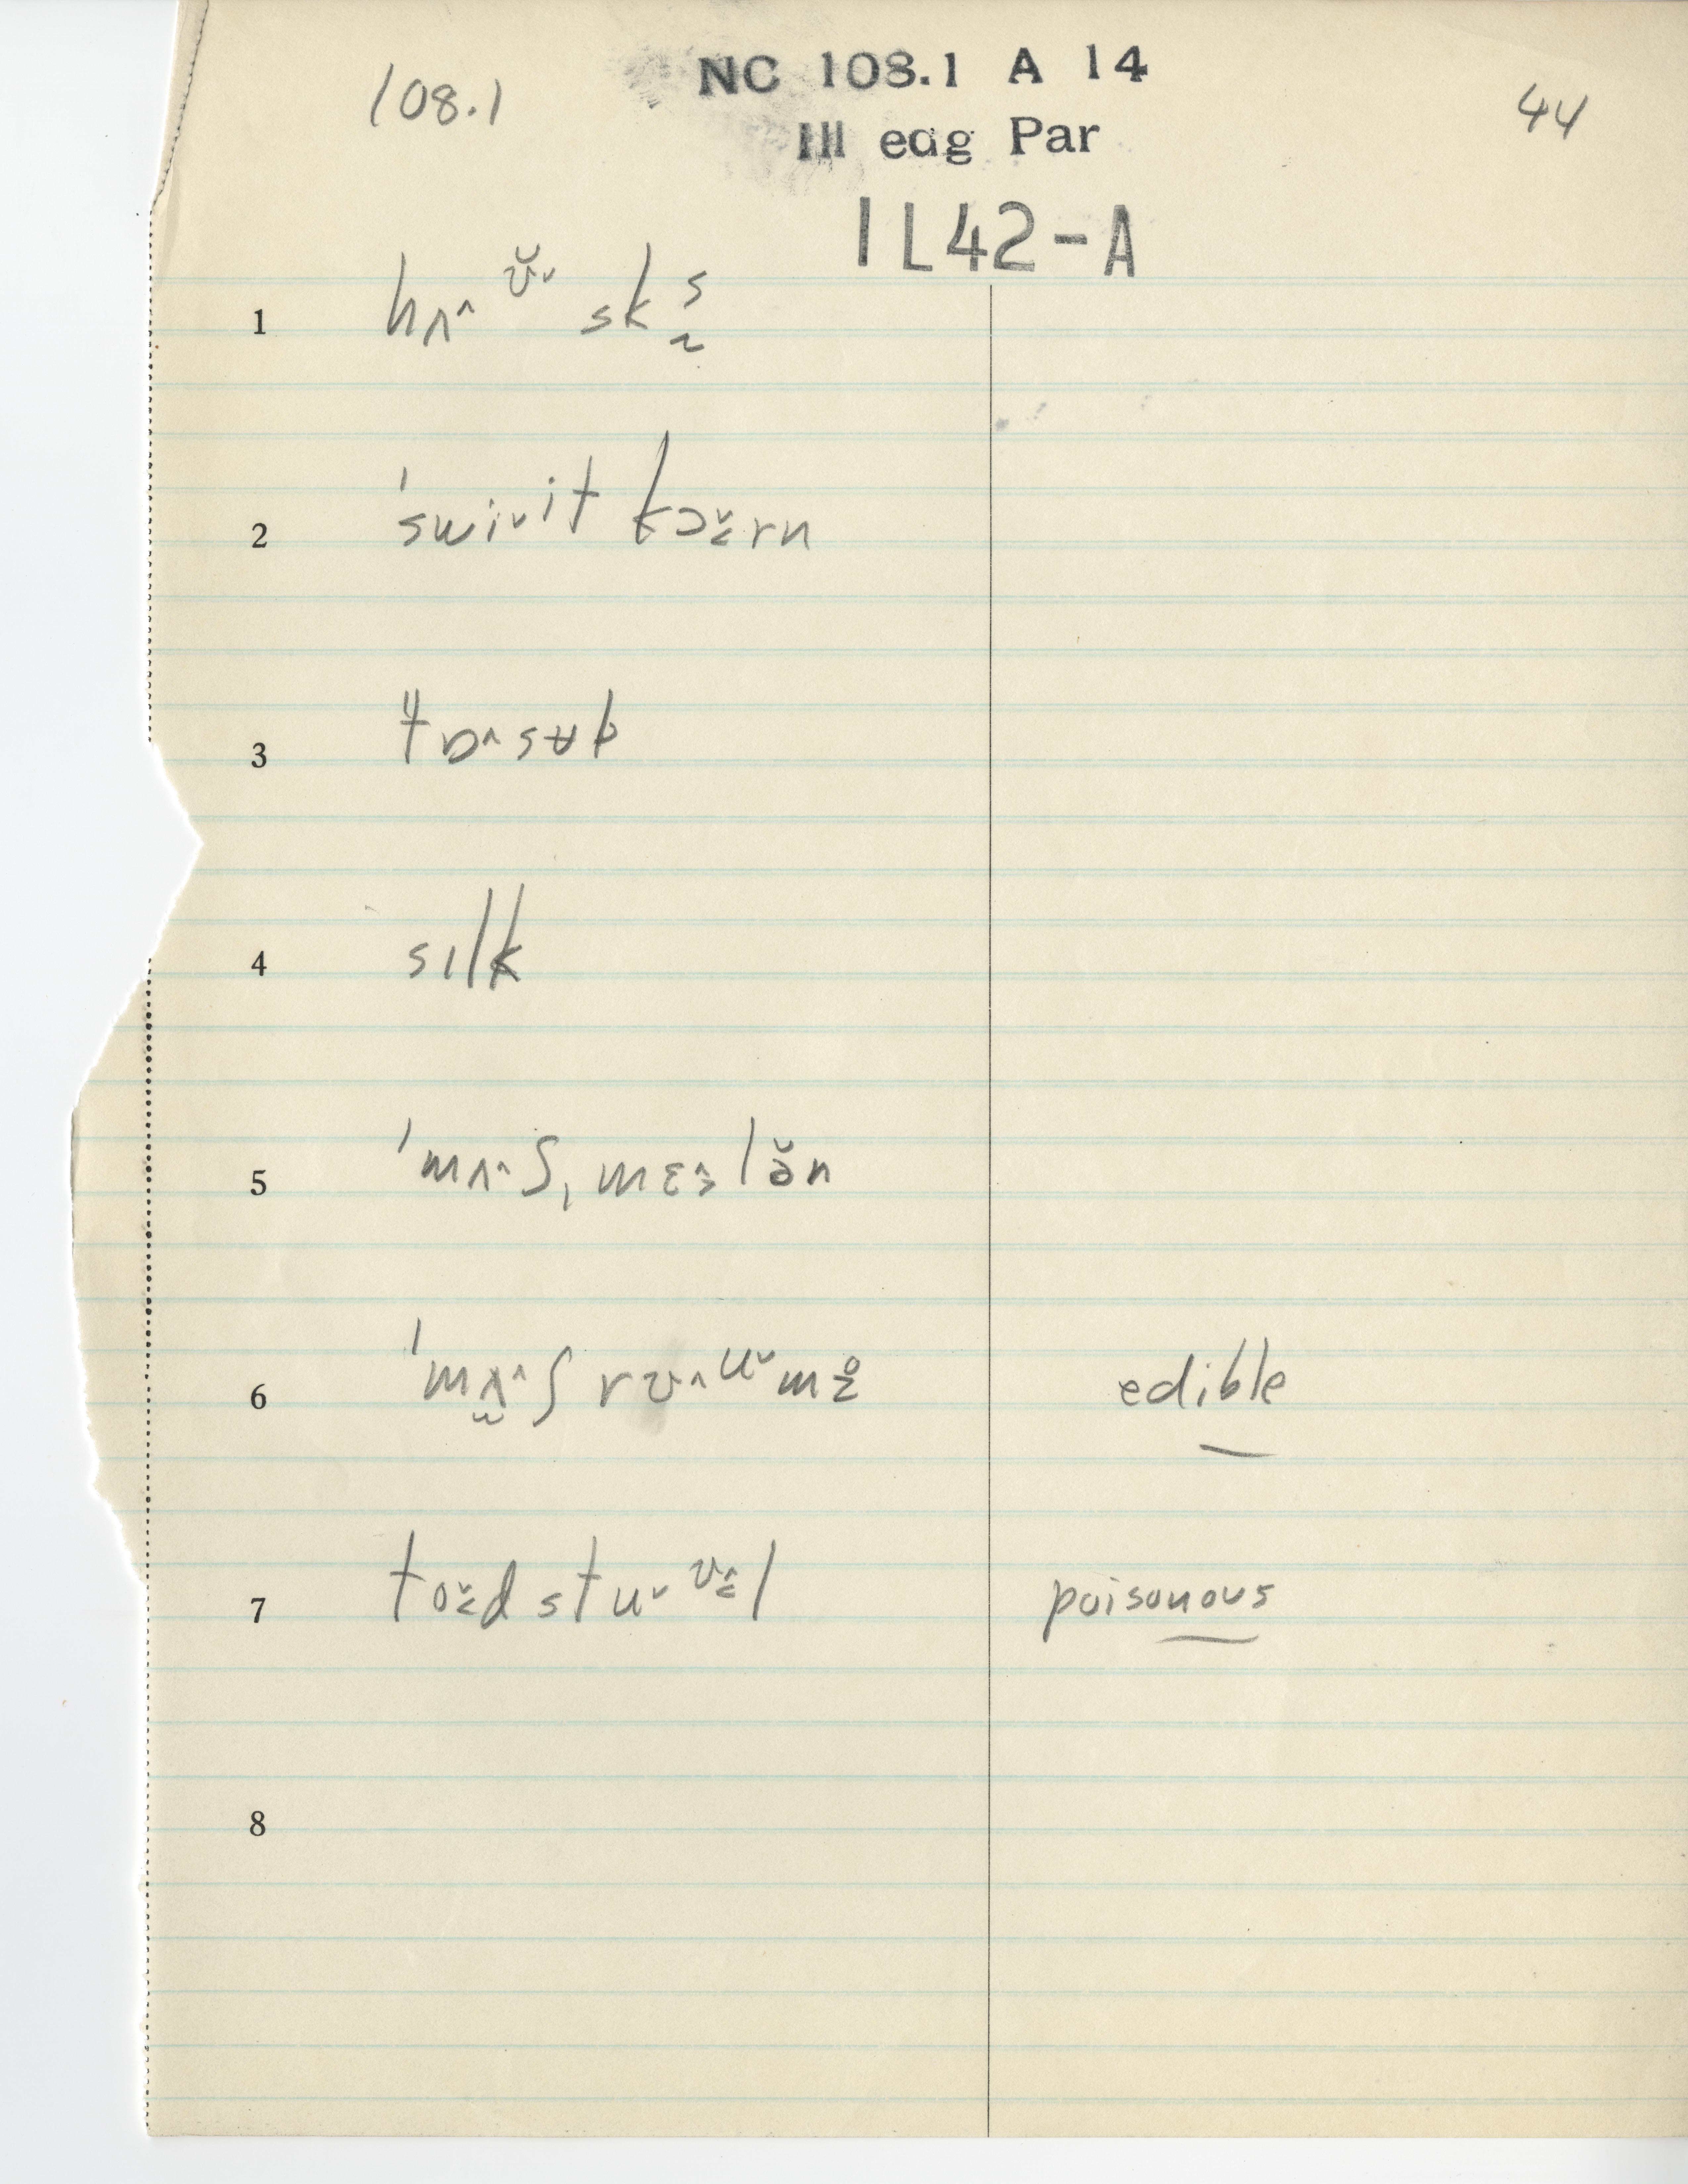 108.1
NC 108.1 A 14
44
Ill edg Par
IL42-A
1 hʌ˄ ʊ̆˅ sks̰
2 ˈswi˅it kɔɛ̌rn
3 tɒ˄sʉp
4 sɪlk
5 ˈmʌ˄ʃˌmɛ˄lə̆n
6 ˈmʌ˄ʃrʊ˄u˅m edible
7 toɛ̌dstu˅ʊl poisonous
8